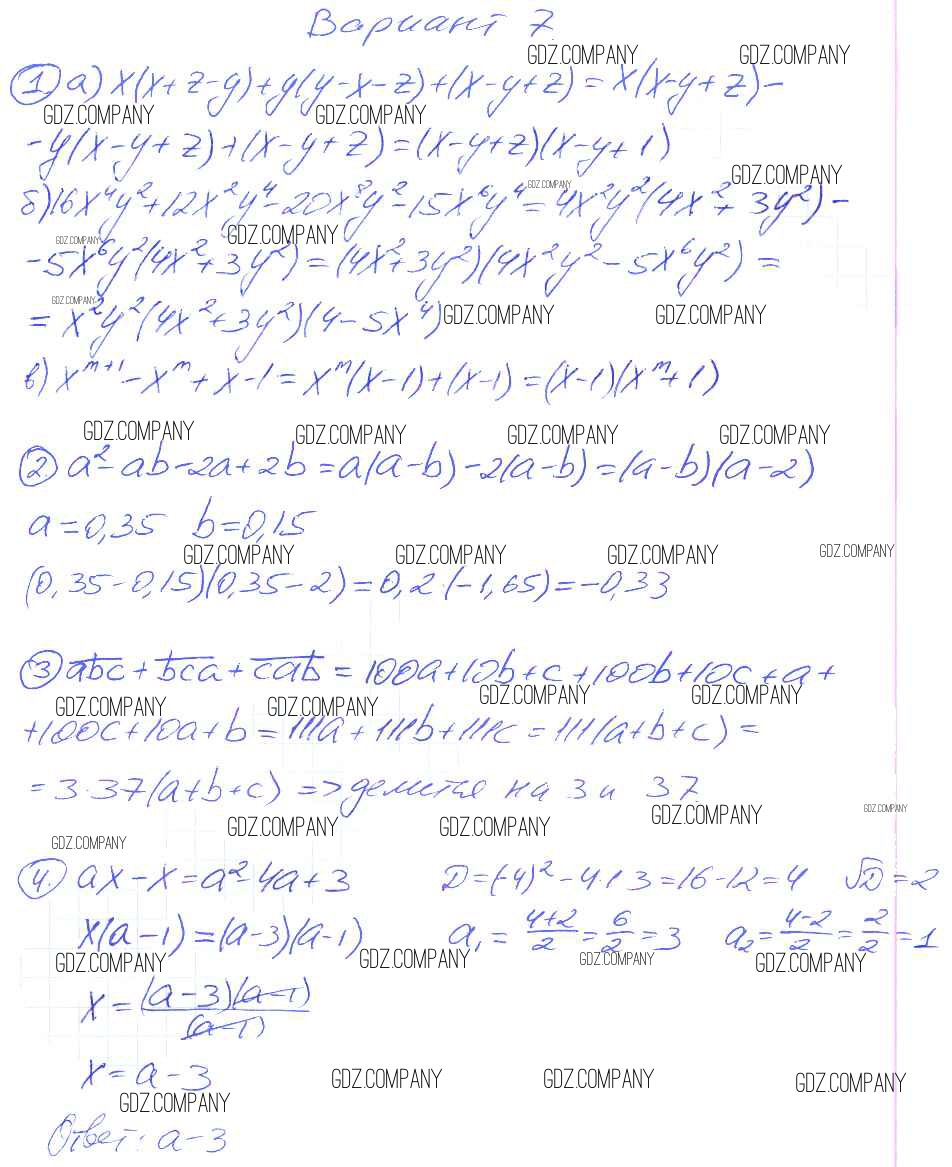 Вариант 7
GDZ.COMPANY GDZ.COMPANY
① а) x(x+z-y)+y(y-x-z)+(x-y+z)=x(x-y+z)-
GDZ.COMPANY GDZ.COMPANY
-y(x-y+z)+(x-y+z)=(x-y+z)(x-y+1)
GDZ.COMPANY GDZ.COMPANY
б) 16x⁴y²+12x²y⁴-20x⁸y²-15x⁶y⁴=4x²y²(4x²+3y²)-
GDZ.COMPANY GDZ.COMPANY
-5x⁶y²(4x²+3y²)=(4x²+3y²)(4x²y²-5x⁶y²)=
GDZ.COMPANY
=x²y²(4x²+3y²)(4-5x⁴) GDZ.COMPANY GDZ.COMPANY
в) xᵐ⁺¹-xᵐ+x-1=xᵐ(x-1)+(x-1)=(x-1)(xᵐ+1)
GDZ.COMPANY GDZ.COMPANY GDZ.COMPANY GDZ.COMPANY
② a²-ab-2a+2b=a(a-b)-2(a-b)=(a-b)(a-2)
a=0,35 b=0,15
GDZ.COMPANY GDZ.COMPANY GDZ.COMPANY GDZ.COMPANY
(0,35-0,15)(0,35-2)=0,2·(-1,65)=-0,33
③ a̅b̅c̅+b̅c̅a̅+c̅a̅b̅=100a+10b+c+100b+10c+a+
GDZ.COMPANY GDZ.COMPANY GDZ.COMPANY GDZ.COMPANY
+100c+10a+b=111a+111b+111c=111(a+b+c)=
=3·37(a+b+c) => делится на 3 и 37
GDZ.COMPANY GDZ.COMPANY GDZ.COMPANY GDZ.COMPANY
GDZ.COMPANY
④. ax-x=a²-4a+3 D=(-4)²-4·1·3=16-12=4 √D=2
x(a-1)=(a-3)(a-1) a₁=(4+2)/2=6/2=3 a₂=(4-2)/2=2/2=1
GDZ.COMPANY GDZ.COMPANY GDZ.COMPANY GDZ.COMPANY
x=(a-3)(a-1)/(a-1)
x=a-3
GDZ.COMPANY GDZ.COMPANY GDZ.COMPANY
GDZ.COMPANY
Ответ: a-3